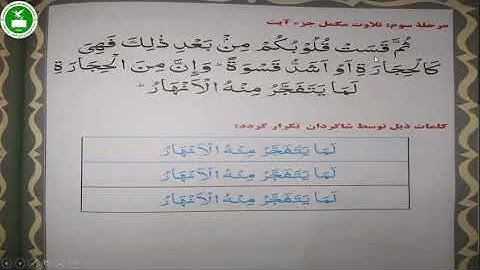 مرحلهٔ سوم: تلاوت مکمل جزء آیت
ثُمَّ قَسَتْ قُلُوْبُكُمْ مِنْۢ بَعْدِ ذٰلِكَ فَهِيَ
كَالْحِجَارَةِ اَوْ اَشَدُّ قَسْوَةً ؕ وَاِنَّ مِنَ الْحِجَارَةِ
لَمَا يَتَفَجَّرُ مِنْهُ الْاَنْهَارُ ؕ
کلمات ذیل توسط شاگردان تکرار گردد:
لَمَا يَتَفَجَّرُ مِنْهُ الْاَنْهَارُ
لَمَا يَتَفَجَّرُ مِنْهُ الْاَنْهَارُ
لَمَا يَتَفَجَّرُ مِنْهُ الْاَنْهَارُ